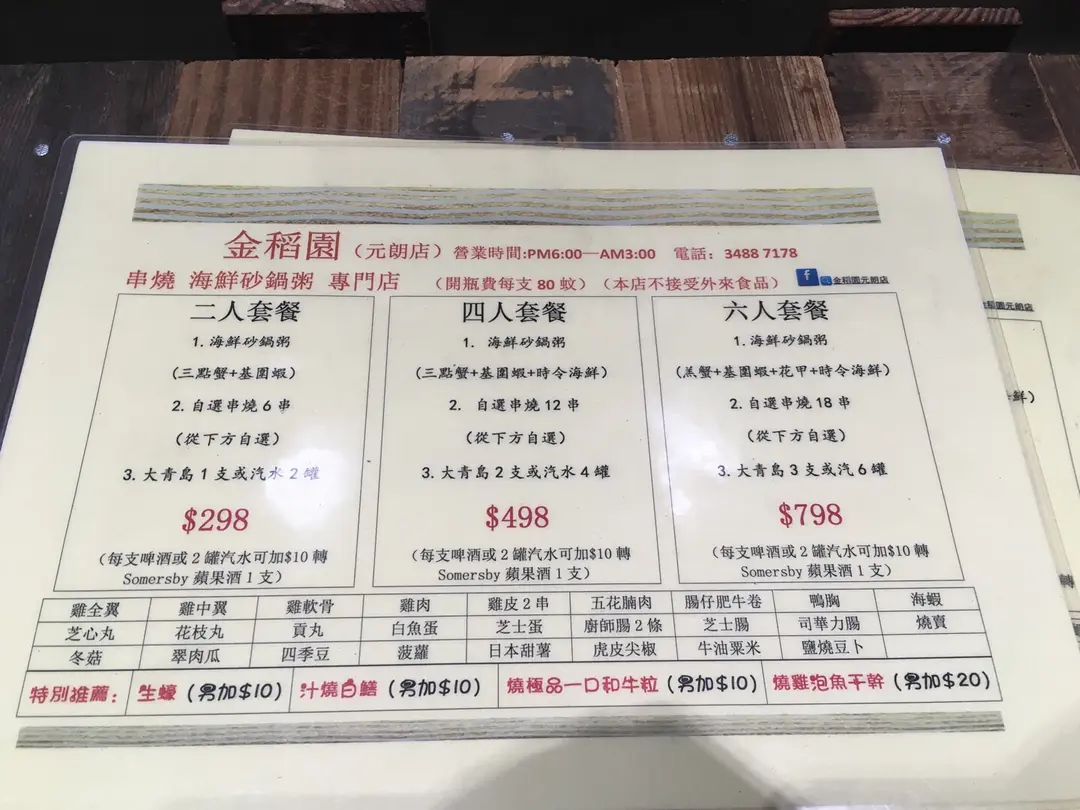 金稻園（元朗店）營業時間:PM6:00—AM3:00 電話：3488 7178
串燒 海鮮砂鍋粥 專門店 （開瓶費每支 80 蚊）（本店不接受外來食品） f 金稻園元朗店
二人套餐
1. 海鮮砂鍋粥
（三點蟹+基圍蝦）
2. 自選串燒 6 串
（從下方自選）
3. 大青島 1 支或汽水 2 罐
$298
（每支啤酒或 2 罐汽水可加$10 轉
Somersby 蘋果酒 1 支）
四人套餐
1. 海鮮砂鍋粥
（三點蟹+基圍蝦+時令海鮮）
2. 自選串燒 12 串
（從下方自選）
3. 大青島 2 支或汽水 4 罐
$498
（每支啤酒或 2 罐汽水可加$10 轉
Somersby 蘋果酒 1 支）
六人套餐
1. 海鮮砂鍋粥
（羔蟹+基圍蝦+花甲+時令海鮮）
2. 自選串燒 18 串
（從下方自選）
3. 大青島 3 支或汽 6 罐
$798
（每支啤酒或 2 罐汽水可加$10 轉
Somersby 蘋果酒 1 支）
雞全翼 雞中翼 雞軟骨 雞肉 雞皮 2 串 五花腩肉 腸仔肥牛卷 鴨胸 海蝦
芝心丸 花枝丸 貢丸 白魚蛋 芝士蛋 廚師腸 2 條 芝士腸 司華力腸 燒賣
冬菇 翠肉瓜 四季豆 菠蘿 日本甜薯 虎皮尖椒 牛油粟米 鹽燒豆卜
特別推薦： 生蠔（另加$10） 汁燒白鱔（另加$10） 燒極品一口和牛粒（另加$10） 燒雞泡魚干幹（另加$20）
園元朗店
鮮）
轉